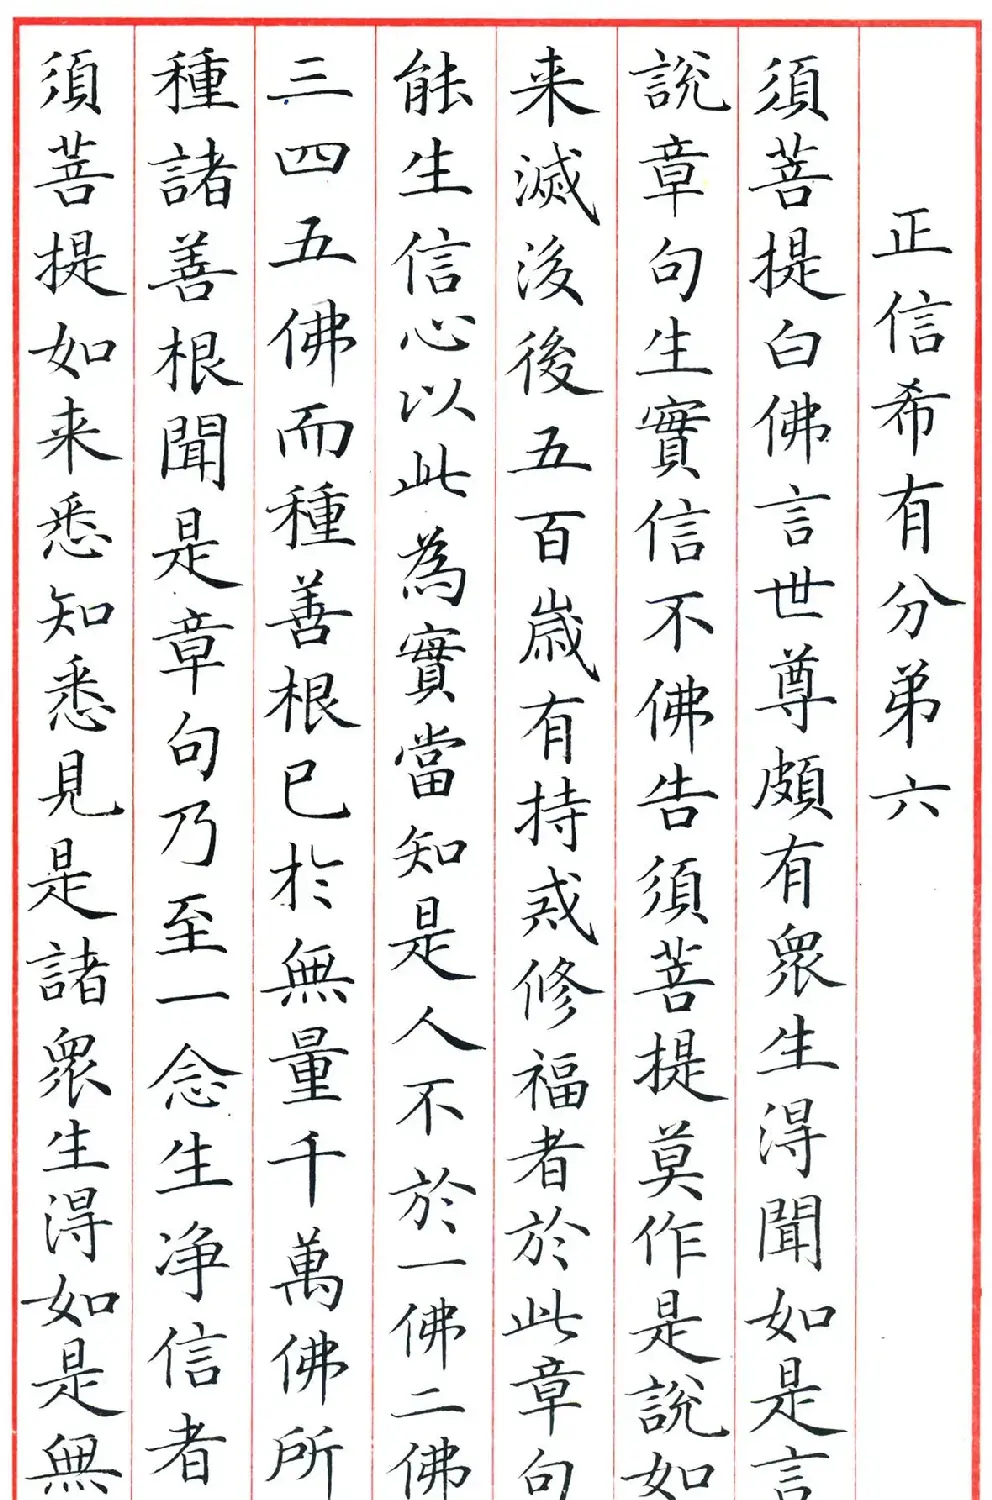 正信希有分弟六
須菩提白佛言世尊頗有衆生得聞如是言
說章句生實信不佛告須菩提莫作是說如
来滅後後五百歲有持戒修福者於此章句
能生信心以此為實當知是人不於一佛二佛
三四五佛而種善根已於無量千萬佛所
種諸善根聞是章句乃至一念生净信者
須菩提如来悉知悉見是諸衆生得如是無